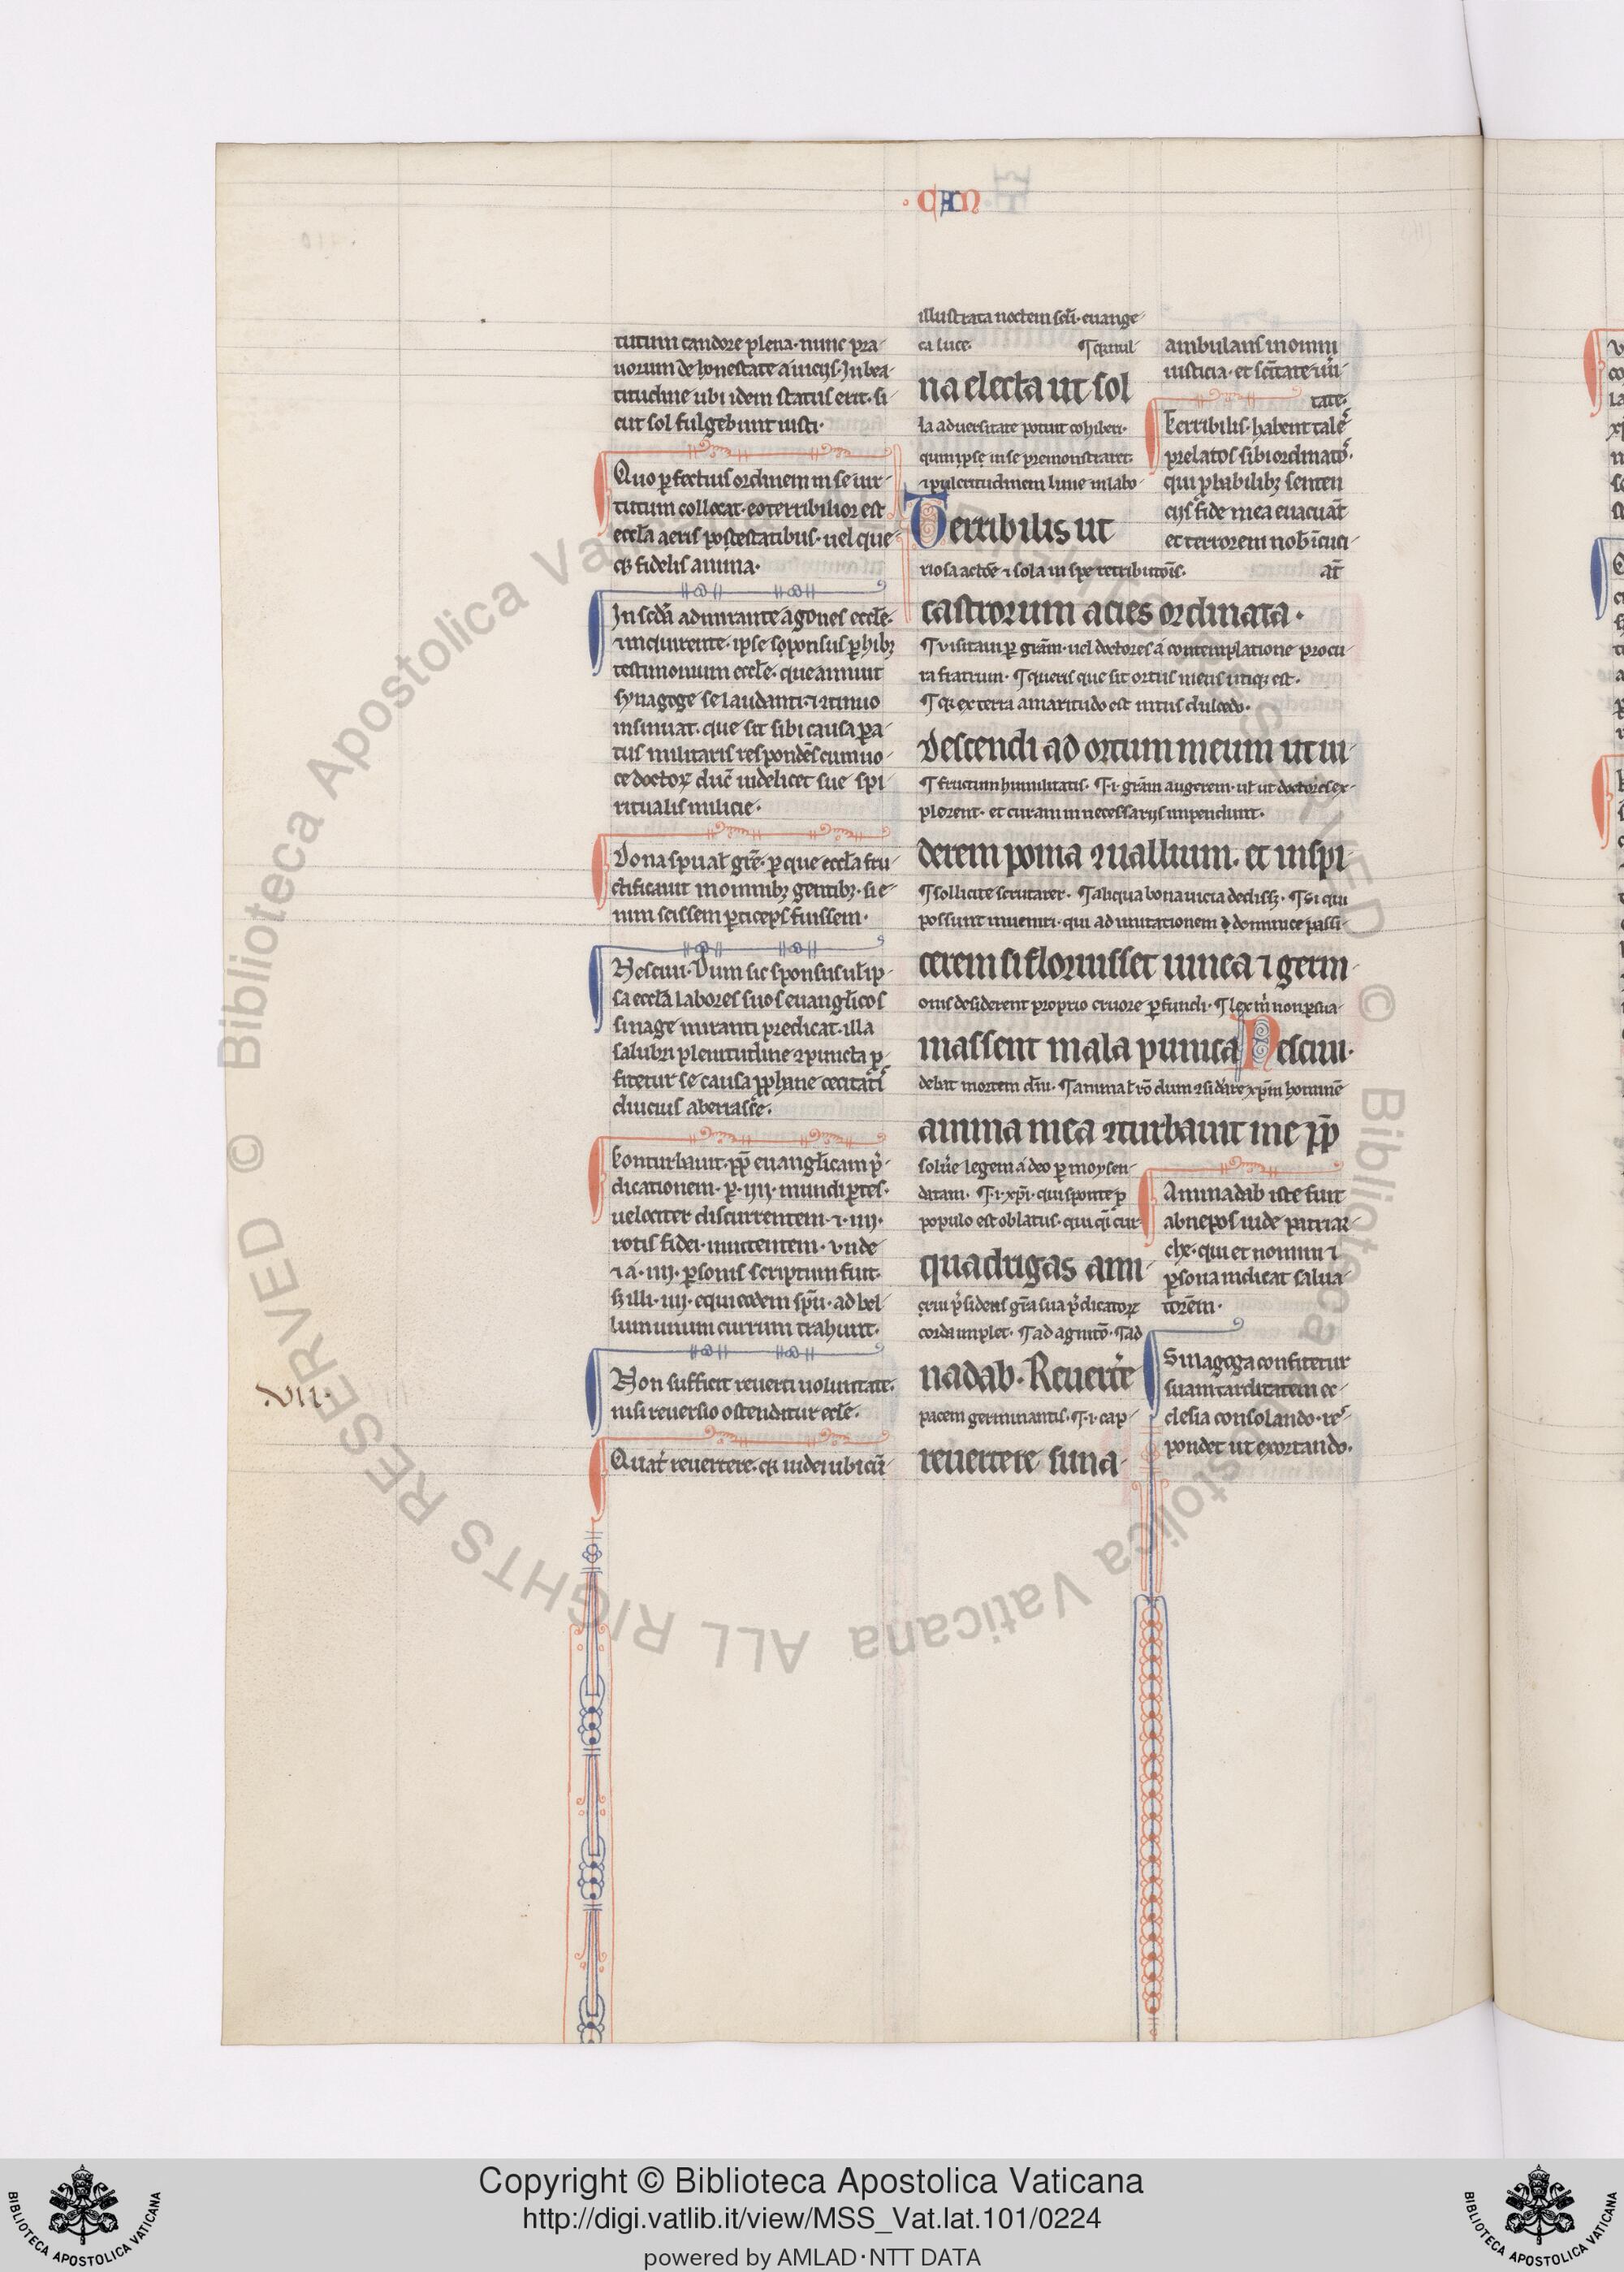 · CAN ·
tutum candore plena· nunc pra-
uorum de honestate a uiciis· In bea-
titudine ubi idem status erit· si-
cut sol fulgebunt iusti·
Quo ꝑfectius ordinem in se uir-
tutum collocat· eo terribilior est
eccl̄a aeris potestatibus· uel que-
qꝫ fidelis anima·
In scd̄a admirante agones eccle·
⁊ inquirente· ipse sponsus ꝑhibꝫ
testimonium eccle·
synagoge se laudanti· ⁊ ꝯtinuo
insinuat· que sit sibi causa ꝑa-
tus militaris respondēs cum uo-
ce doctoꝝ duc̄ uidelicet sue spi-
ritualis milicie·
Dona spual̄ grē· ꝑ que eccl̄a fru-
ctificauit in omnibꝫ gentibꝫ· si e-
nim scissem ꝑticeps fuissem·
Nesciui· Dum sic sponsus ul̄ ip-
sa eccl̄a labores suos euangl̄icos
sinage miranti predicat· illa
salubri plenitudine ꝯpuncta ꝓ-
fitetur se causa ꝓphane cecitatis
diucius aberrasse·
Conturbauit· ꝓꝑ euangl̄icam p̄-
dicationem· ꝑ· iiii· mundi ꝑtes·
uelociter discurrentem· ⁊· iiii·
rotis fidei· innitentem· vnde
⁊ a· iiii· ꝑsonis scriptum fuit·
sꝫ illi· iiii· equi eodem spū· ad bel-
lum unum currum trahunt·
.VII.
Non sufficit reuerti uoluntate·
nisi reuersio ostenditur ecle·
Quat̄ reuertere· qꝫ iudei ubi cū
illustrata noctem scl̄i· euange-
ca luce· ¶ qm nul-
na electa ut sol
la aduersitate potuit cohiberi·
qum ipse in se premonstraret
⁊ pulcritudinem lune in labo-
Terribilis ut
riosa actōe ⁊ sola in spe retributōis·
castrorum acies ordinata·
¶ visitaui ꝑ grām· uel doctores a contemplatione procu-
ra fratrum· ¶ queris que sit ortus meus utiqꝫ est·
¶ qꝫ exteria amaritudo est intus dulcedo·
Descendi ad ortum meum ut ui-
¶ fructum humilitatis· ¶·i· grām augerem· ul̄ ut doctores ex-
plorent· et curam in necessariis impendunt·
derem poma ꝯuallium· et inspi-
¶ sollicite scrutarer· ¶ aliqua bona uicia declissꝫ· ¶ si qui
possunt inueniri· qui ad imitationem dominice passi-
cerem si floruisset uinea ⁊ germ-
onis desiderent proprio cruore ꝑfundi· ¶ lex m̄ non ꝑsua-
nassent mala punica Nesciui·
debat mortem dn̄i· ¶ animal̄ rō dum ꝯsidāre xp̄m hominē
anima mea ꝯturbauit me ꝓꝑ
solue legem a deo ꝑ moysen
datam· ¶·i· xp̄i· qui sponte ꝓ
populo est oblatus·
quadrigas ami-
ceui p̄sidens grā sua p̄dicatoꝝ
corda implet· ¶ ad agnitō· ¶ ad
nadab· Reuert̄e
pacem germinantis· ¶·i· cap-
reuertere suna-
ambulans in omni
iusticia· et scītate uīi-
tate·
Terribilis· habent tales
prelatos sibi ordinatos·
qui ꝓbabilibꝫ senten-
ciis fide mea euacuāt
et terrorem nob̄ incuci-
āt
Aminadab iste fuit
abnepos iude patriar-
che· qui et nomini ⁊
ꝑsona indicat salua-
torem·
Sinagoga confitetur
suam tarditatem ec-
clesia consolando· res-
pondet ut exortando·
Copyright © Biblioteca Apostolica Vaticana
http://digi.vatlib.it/view/MSS_Vat.lat.101/0224
powered by AMLAD·NTT DATA
BIBLIOTECA APOSTOLICA VATICANA
BIBLIOTECA APOSTOLICA VATICANA
© Biblioteca Apostolica Vaticana ALL RIGHTS RESERVED
© Biblioteca Apostolica Vaticana ALL RIGHTS RESERVED